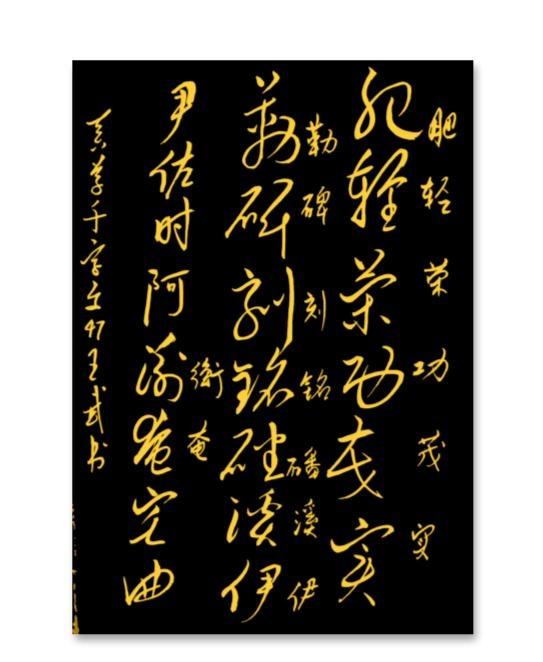 肥轻荣功茂实
肥轻荣功茂实
勒碑刻铭磻溪伊
勒碑刻铭磻溪伊
衡奄
尹佐时阿衡奄宅曲
真草千字文47王武书